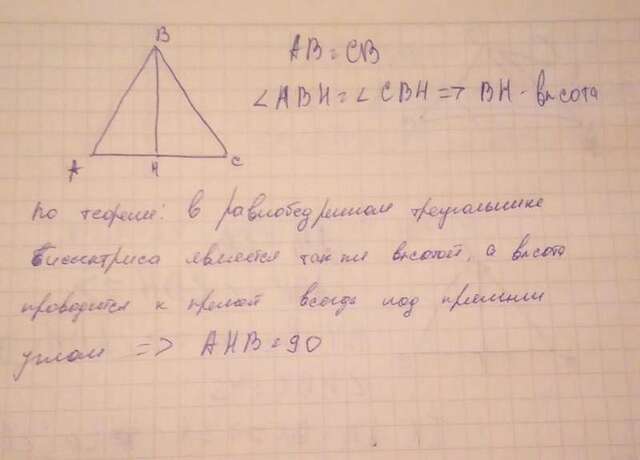 B
AB = CB
∠ABH = ∠CBH => BH - высота
A H C
по теореме: в равнобедренном треугольнике
биссектриса является так же высотой, а высота
проводится к прямой всегда под прямым
углом => AHB = 90